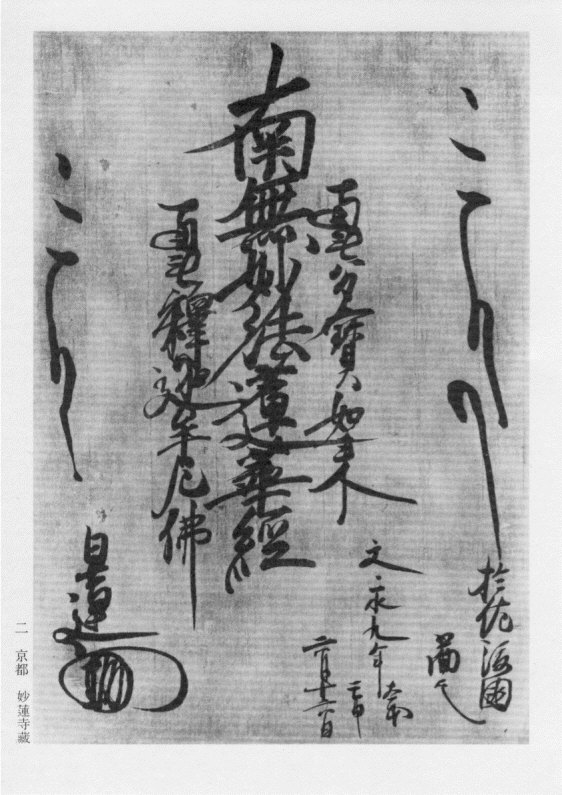 於佐渡國
圖之
文永九年
太才
壬申
六月十六日
南無多寶如来
南無妙法蓮華經
南無釋迦牟尼佛
日蓮
二 京都 妙蓮寺藏